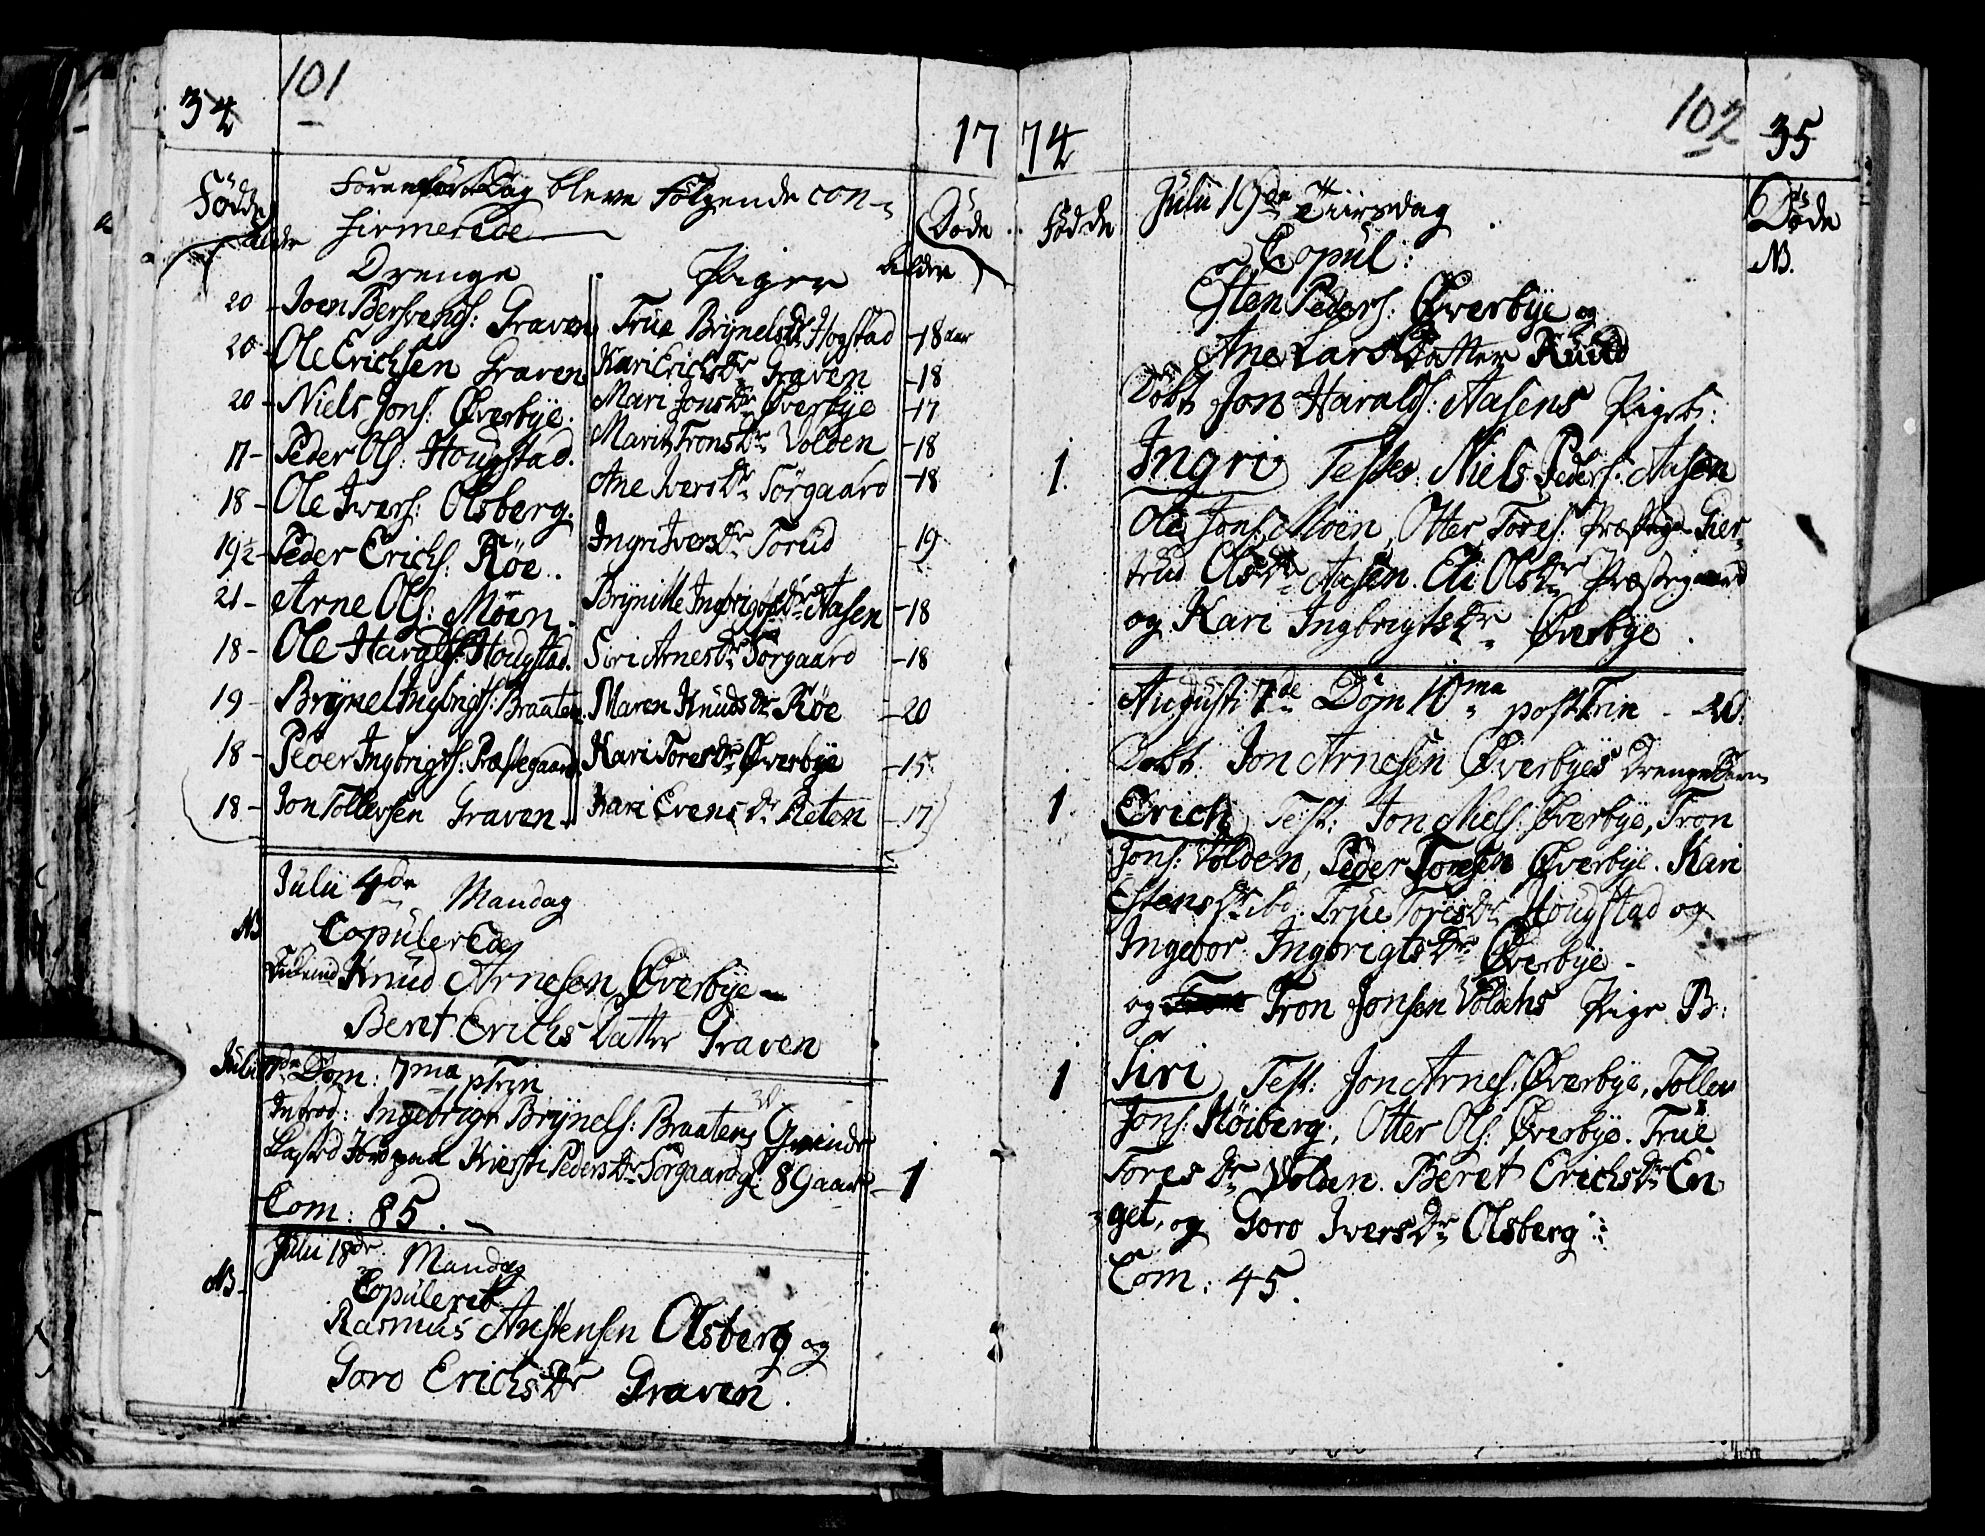 34
101
17
Födde
Alder
bleve Følgende con-
firmerede
Døde
Alder
Drenge
Piger
20 - Joen Bersvends: Graven
True Brÿnels Dr Hogstad - 18 aar
20 - Ole Erichsen Graven
Kari Erichs Dr Graven - 18
20 - Niels Jons: Øverbÿe.
Mari Jons Dr Øverbÿe - 17
17 - Peder Ols: Hougstad.
Marit Trons Dr Volden - 18
18 - Ole Ivers: Olsberg.
Ane Ivers Dr Sørgaard - 18
19½ - Peder Erichs: Røe.
Ingri Ivers Dr Sorud - 19
21 - Arne Ols: Moen.
Brÿnille Ingbrigts Dr Aasen - 18
18 - Ole Haralds: Hougstad.
Siri Arnes Dr Sørgaard - 18
19 - Brÿnel Ingbrigts: Braaten.
Maren Knuds Dr Røe - 20
18 - Peder Ingbrigts: Præstegaard.
Kari Tores Dr Øverbÿe - 15
18 - Jon Tollefsen Graven
Kari Evens Dr Reten - 17
Julii 4de Mandag
NB
Copulerede
Knud Arnesen Øverbÿe -
Beret Erichs Datter Graven
Julii Dom: 7ma p Trin
Introd: Ingebrigt Brÿnels: Braatens Qvinde
Kasted Jord paa Kiersti Peders Dr Sørgaard 89 aar - 1
Com: 85.
Julii 18de Mandag
NB.
Copuleret
Rasmus Austensen Olsberg og
Goro Erichs Dr Graven.
74
102
35
Födde
Døde
NB.
Julii 19de Tiirsdag
Copul:
Esten Peders: Øverbÿe og
Ane Lars Datter Ruud
Døbt Jon Haralds: Aasens Pigeb:
1. Ingri Testes: Niels Peders: Aasen
Ole Jons: Moen, Otter Tores: Præsteg- Gier-
trud Ols Dr Aasen. Eli Ols Dr Præstegaard
og Kari Ingbrigts Dr Øverbÿe.
Augusti 7de Dom 10ma post Trin -
Døbt Jon Arnesen Øverbÿes Drenge Barn
1. Erich Test: Jon Niels: Øverbÿe, Tron
Jons: Volden, Peder Joensen Øverbÿe. Kari
Estens Dr ibd. True Tores Dr Hougstad og
Ingebor Ingbrigts Dr Øverbÿe -
og Tron Jonsen Voldens Pige B:
1 Siri Test: Jon Arnes: Øverbÿe, Tollev
Jons: Høiberg, Otter Ols: Øverbÿe. True
Tores Dr Volden. Beret Erichs Dr En
get, og Goro Ivers Dr Olsberg
Com: 45.